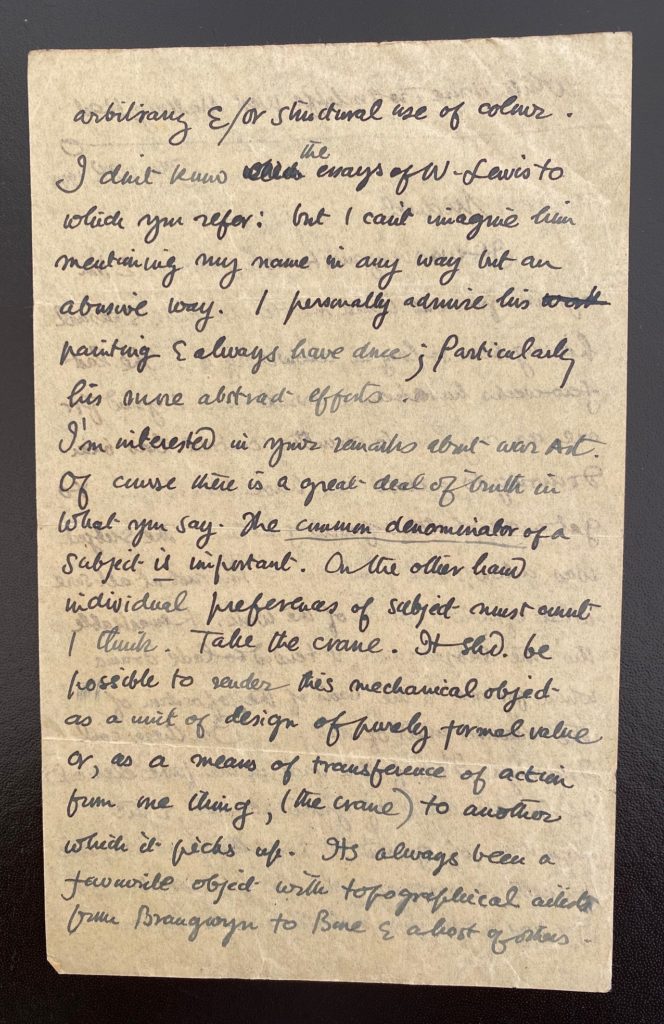 arbitrary &/or structural use of colour.
I don't know the essays of W-Lewis to
which you refer: but I can't imagine him
mentioning my name in any way but an
abusive way. I personally admire his work
painting & always have done; Particularly
his more abstract efforts.
I'm interested in your remarks about war Art.
Of course there is a great deal of truth in
what you say. The common denominator of a
subject is important. On the other hand
individual preferences of subject must count
I think. Take the crane. It shd. be
possible to render this mechanical object
as a unit of design of purely formal value
or, as a means of transference of action
from one thing, (the crane) to another
which it picks up. Its always been a
favourite object with topographical artists
from Brangwyn to Bone & a host of others.